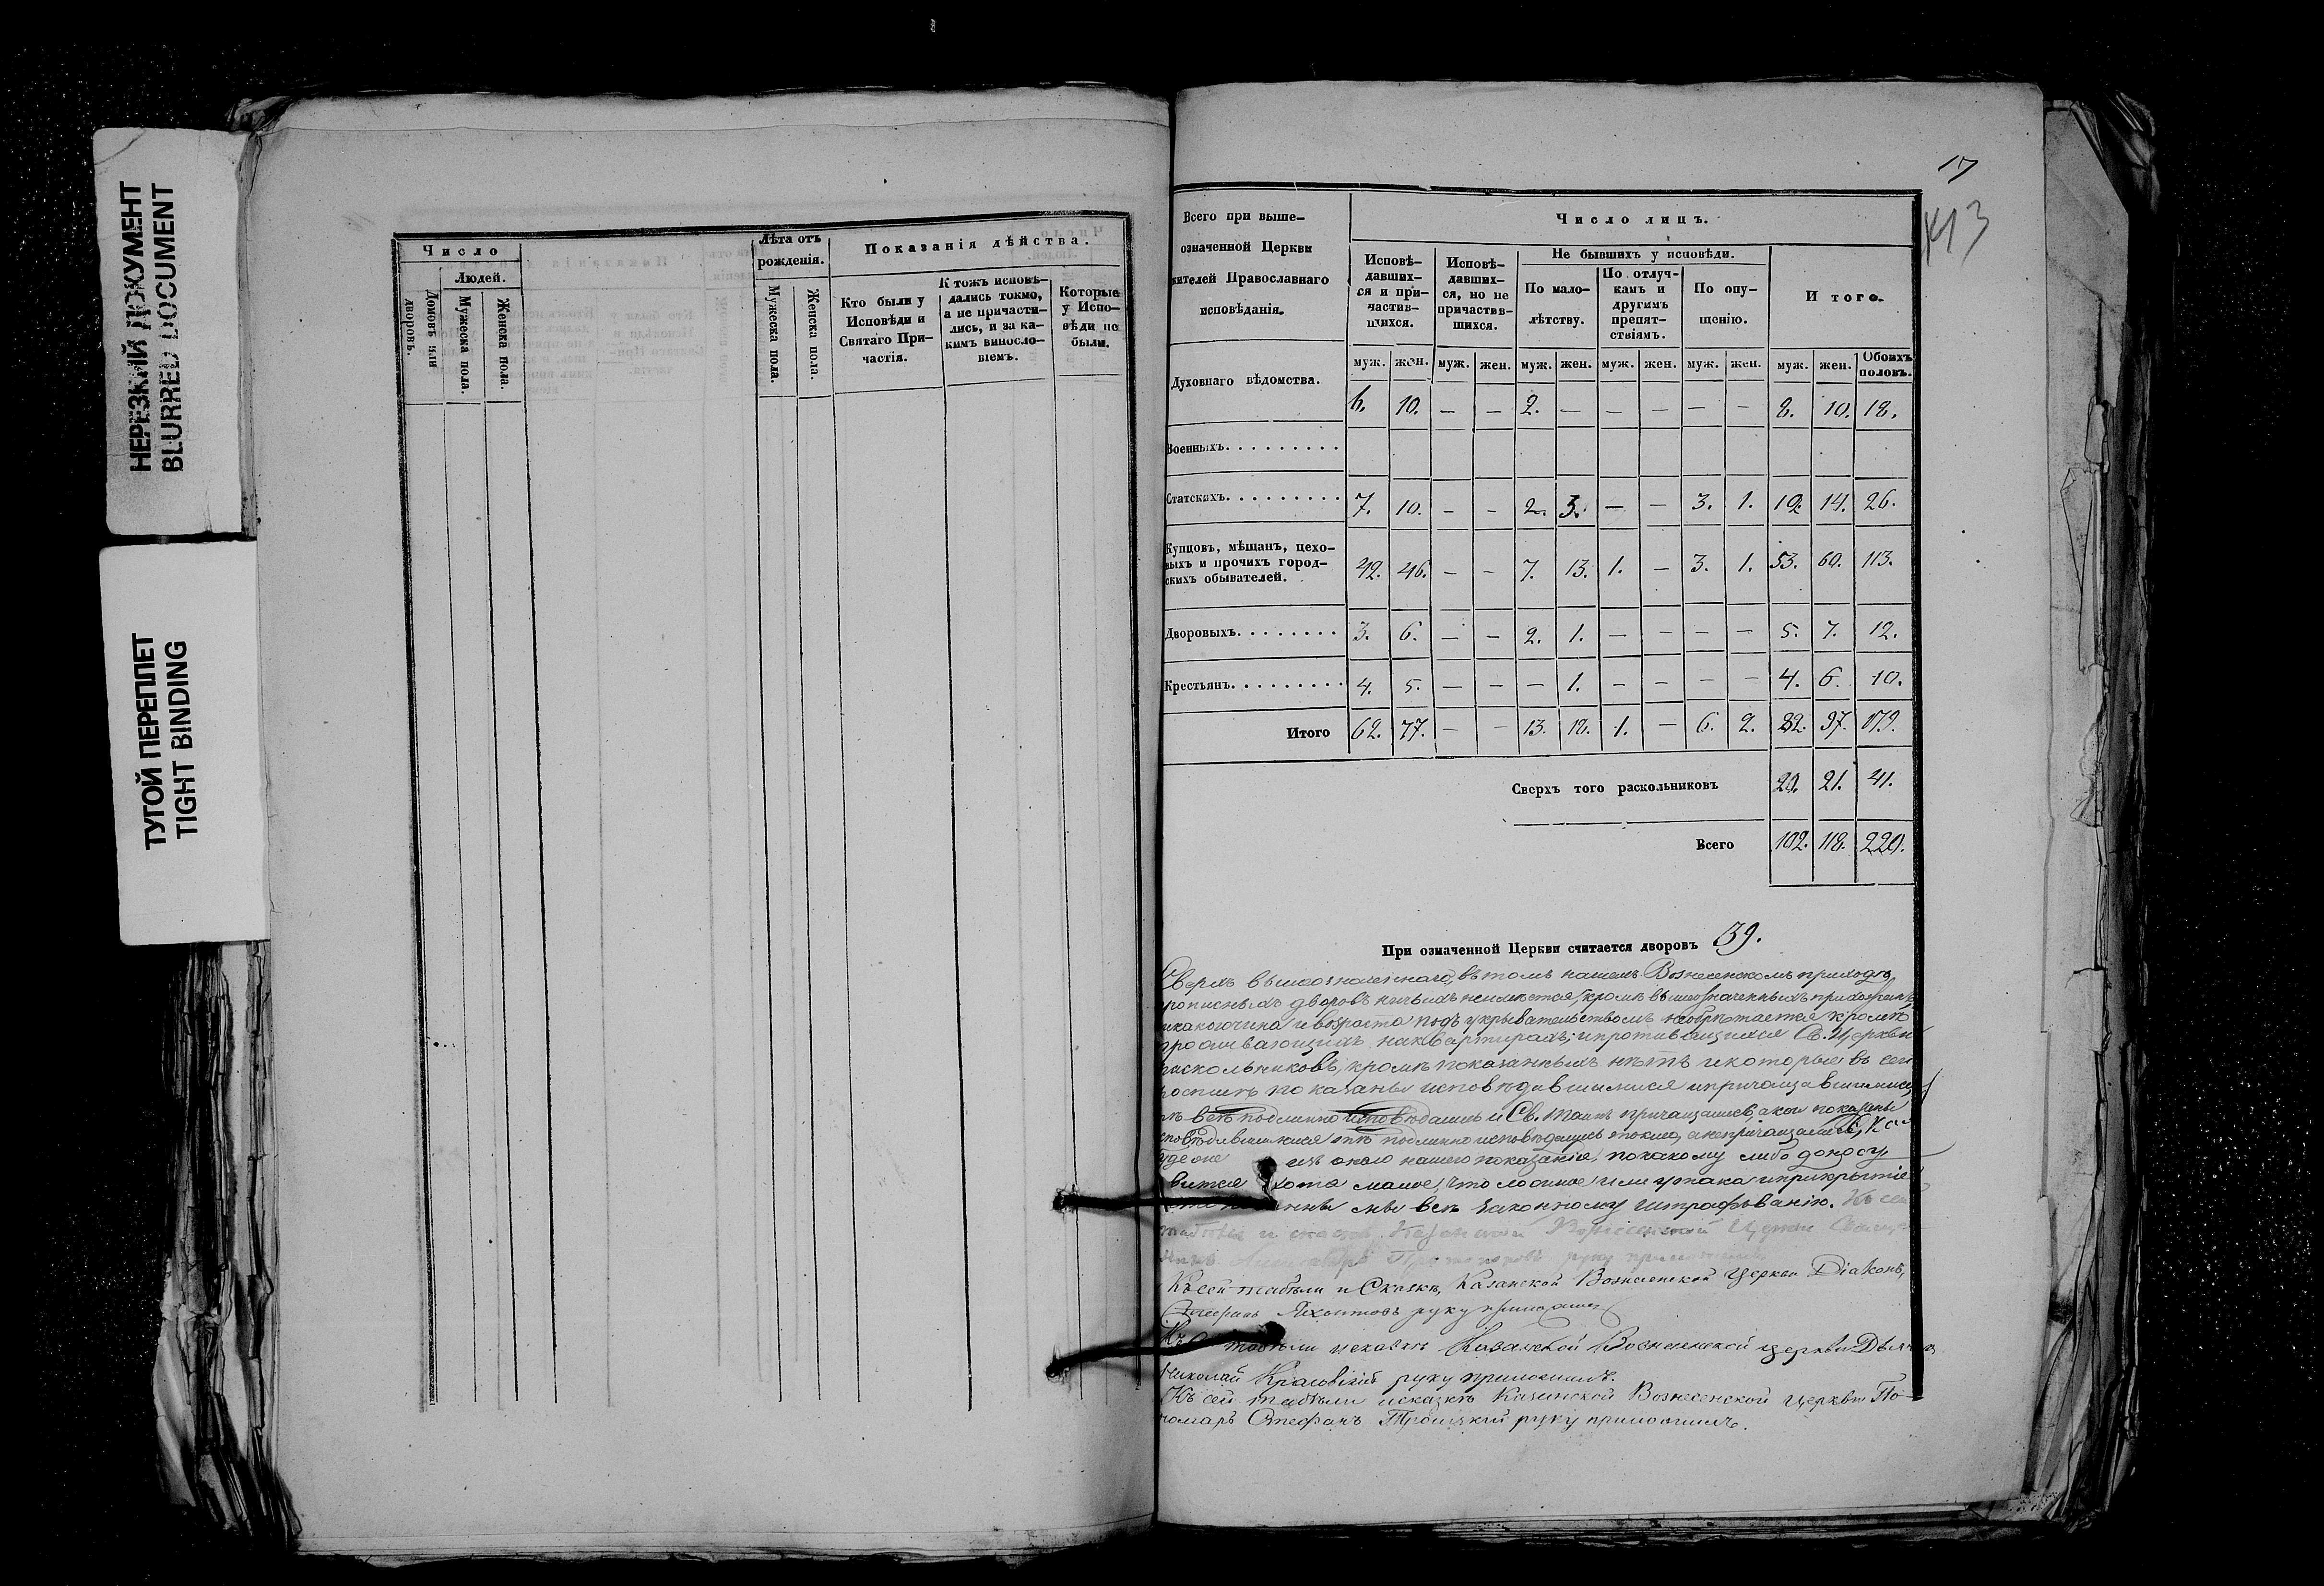 НЕРЕЗКИЙ ДОКУМЕНТ
BLURRED DOCUMENT
ТУГОЙ ПЕРЕПЛЕТ
TIGHT BINDING
Число
Людей.
Домовъ или дворовъ.
Мужеска пола.
Женска пола.
Лѣта отъ рожденія.
Мужеска пола.
Женска пола.
Показанія дѣйства.
Кто были у Исповѣди и Святаго Причастія.
К тожъ исповѣдались токмо, а не причастились, и за какимъ винословіемъ.
Которые у Исповѣди не были.
17
413
Всего при вышеозначенной Церкви жителей Православнаго исповѣданія.
Число лицъ.
Исповѣдавшихся и причастившихся.
Исповѣдавшихся, но не причастившихся.
Не бывшихъ у исповѣди.
По малолѣтству.
По отлучкамъ и другимъ препятствіямъ.
По опущенію.
Итого.
муж. жен. муж. жен. муж. жен. муж. жен. муж. жен. муж. жен. Обоихъ половъ.
Духовнаго вѣдомства. 6. 10. — — 2. — — — — — 8. 10. 18.
Военныхъ
Статскихъ 7. 10. — — 2. 3. — — 3. 1. 12. 14. 26.
Купцовъ, мѣщанъ, цеховыхъ и прочихъ городскихъ обывателей. 42. 46. — — 7. 13. 1. — 3. 1. 53. 60. 113.
Дворовыхъ 3. 6. — — 2. 1. — — — — 5. 7. 12.
Крестьянъ 4. 5. — — — 1. — — — — 4. 6. 10.
Итого 62. 77. — — 13. 18. 1. — 6. 2. 82. 97. 179.
Сверхъ того раскольниковъ 20. 21. 41.
Всего 102. 118. 220.
При означенной Церкви считается дворовъ 39.
Сверхъ вышеозначеннаго, въ томъ нашемъ Вознесенскомъ приходѣ
прописныхъ дворовъ ничьихъ неимѣется, кромѣ вышеозначенныхъ прихожанъ
никакого чина и возраста подъ укрывательствомъ необрѣтается кромѣ
проживающихъ на квартирахъ; и противящихся Св. Церкви
раскольниковъ, кромѣ показанныхъ нѣтъ и которые въ сей
росписи показаны исповѣдавшимися и причащавшимися,
тѣ всѣ подлинно исповѣдались и Св. Таинъ причащались, а кои показаны
исповѣдавшимися тѣ подлинно исповѣдались токмо, а непричащались,
около нашего показанія, по какому либо доносу,
хотя малое, что ложное или утайка и прикрытіе
мы всѣ законному штрафованію. Къ сей
Казанской Вознесенской Церкви
руку приложилъ
Къ сей табѣли и Сказкѣ, Казанской Вознесенской Церкви Діаконъ,
руку приложилъ
табѣли и сказкѣ Казанской Вознесенской церкви Дьячекъ
Николай руку приложилъ.
Къ сей табѣли и сказкѣ Казанской Вознесенской церкви По-
номарь Стефанъ Троицкій руку приложилъ.